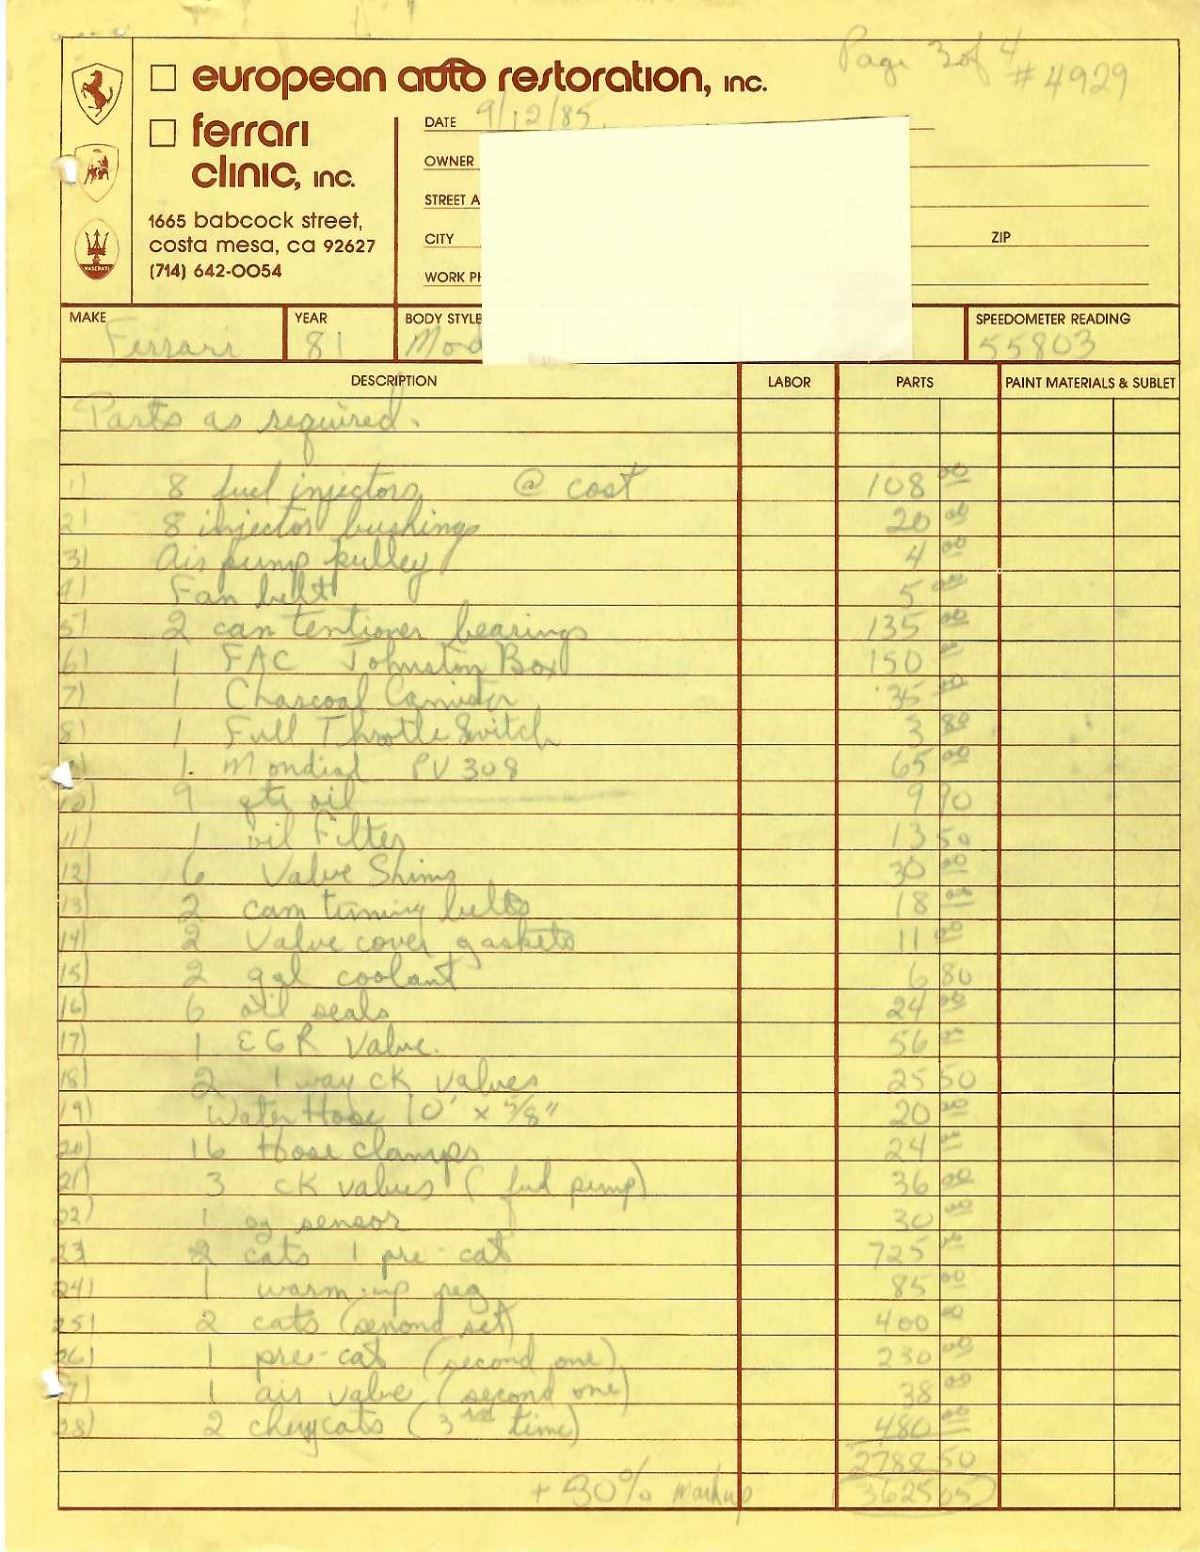 Page 3 of 4
# 4929
european auto restoration, inc.
ferrari
clinic, inc.
1665 babcock street,
costa mesa, ca 92627
(714) 642-0054
MASERATI
DATE 9/12/85
OWNER
STREET A
CITY ZIP
WORK PH
MAKE YEAR BODY STYLE SPEEDOMETER READING
Ferrari 81 Mond 55803
DESCRIPTION LABOR PARTS PAINT MATERIALS & SUBLET
Parts as required.
1) 8 fuel injectors @ cost 108 00
2) 8 injector bushings 20 00
3) Air pump pulley 4 00
4) Fan belt 5 00
5) 2 cam tentioner bearings 135 00
6) 1 FAC Johnston Box 150 00
7) 1 Charcoal Canister 35 00
8) 1 Full Throttle Switch 3 80
9) 1. Mondial PV 308 65 00
10) 9 qts oil 9 90
11) 1 oil Filter 13 50
12) 6 Valve Shims 30 00
13) 2 cam timing belts 18 00
14) 2 Valve cover gaskets 11 00
15) 2 gal coolant 6 80
16) 6 oil seals 24 00
17) 1 EGR Valve. 56 00
18) 2 1 way ck valves 25 50
19) Water Hose 10' x 5/8" 20 00
20) 16 Hose clamps 24 00
21) 3 ck valves (fuel pump) 36 00
22) 1 sensor 30 00
23 2 cats 1 pre-cat 725 00
24) 1 warm-up reg 85 00
25) 2 cats (second set) 400 00
26) 1 pre-cat (second one) 230 00
27) 1 air valve (second one) 38 00
28) 2 cats (3rd time) 480 00
2788 50
+ 30% markup 3625 05